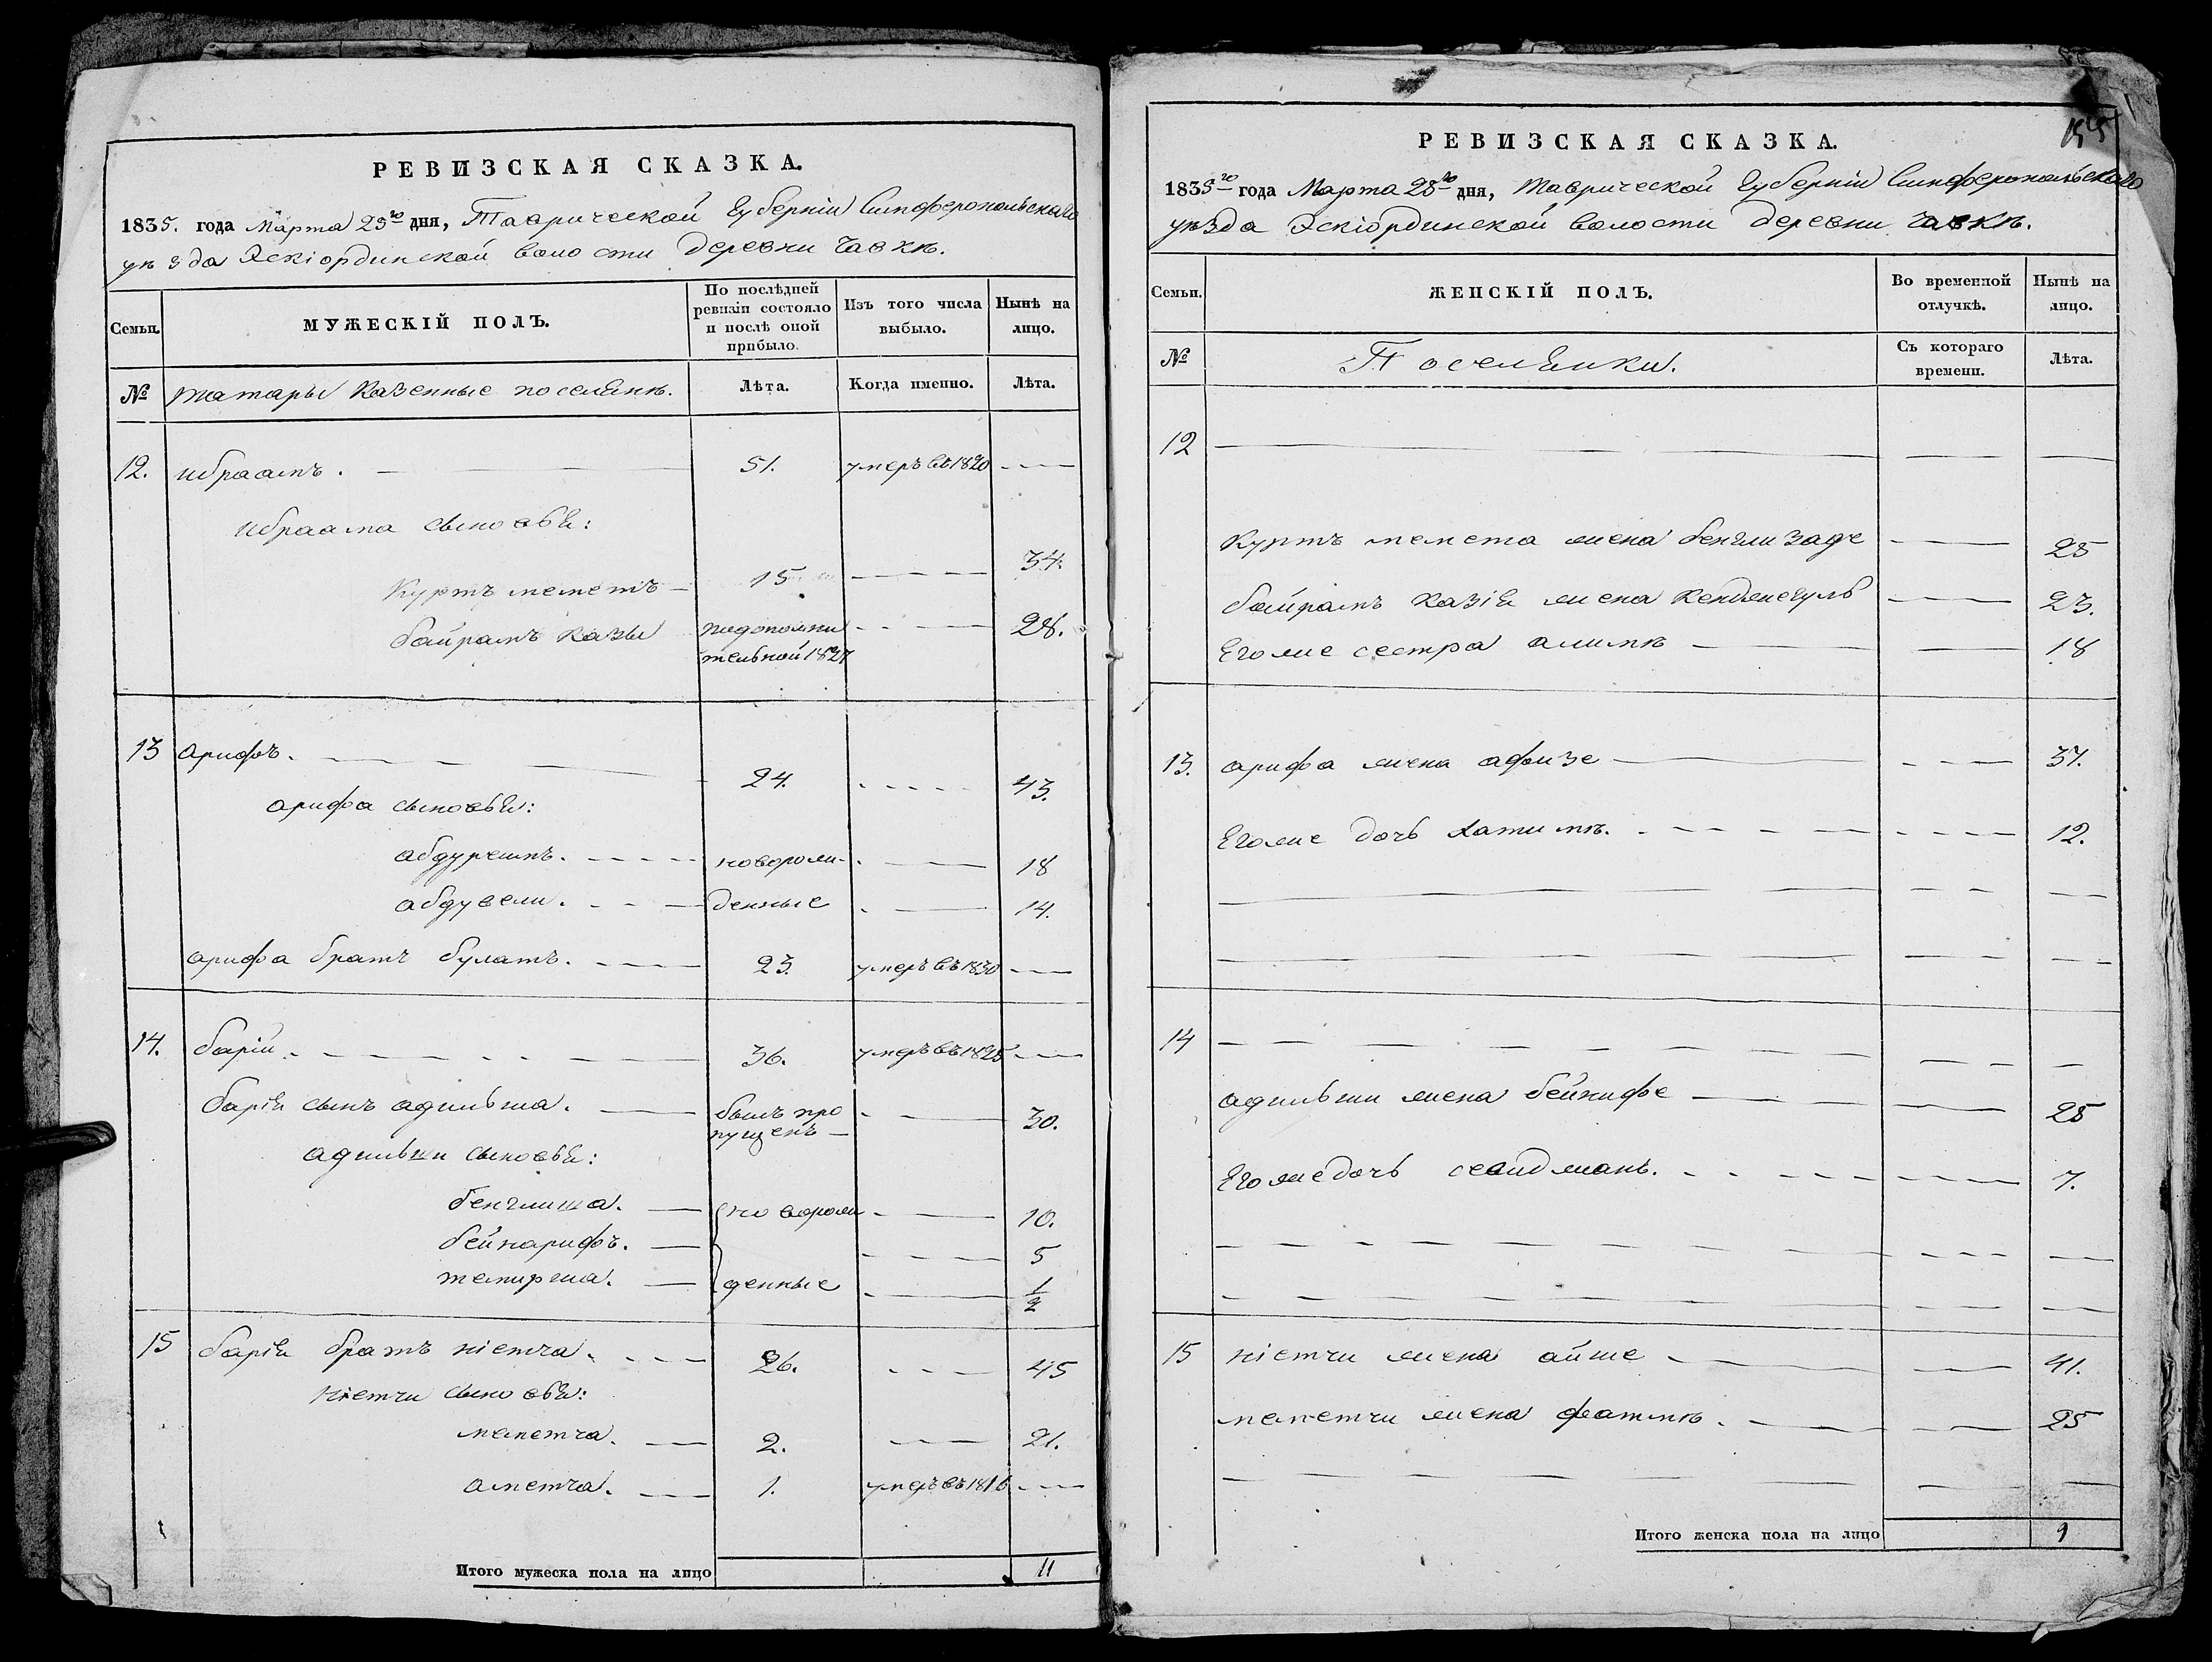 РЕВИЗСКАЯ СКАЗКА.
1835. года Марта 25го дня, Таврической Губернiи Симферопольскаго
уѣзда Эскiординской волости деревни Чавкѣ.
Семьи.
МУЖЕСКIЙ ПОЛЪ.
По послѣдней ревизiи состояло и послѣ оной прибыло.
Изъ того числа выбыло.
Нынѣ на лицо.
№ татары казенные поселянѣ. Лѣта. Когда именно. Лѣта.
12. ибраамъ. 51. умеръ въ 1820
ибраама сыновья:
Куртъ меметъ 15 34.
байрамъ казы подополни 28.
тельной 1827
13 арифъ. 24. 43.
арифа сыновья:
абдурешъ. новорож- 18
абдувели. денные 14.
арифа братъ булатъ. 23. умеръ въ 1830
14. барiй. 36. умеръ въ 1825
барiя сынъ адильша. былъ про 30.
пущенъ
адильши сыновья:
бенглиша. новорож 10.
бейкарифъ. 5
темирша. денные 1/2
15 барiя братъ нiетча. 26. 45
нiетчи сыновья:
меметча. 2. 21.
аметча. 1. умеръ въ 1816
Итого мужеска пола на лицо 11
155
РЕВИЗСКАЯ СКАЗКА.
1835го года Марта 25го дня, Таврической Губернiи Симферопольскаго
уѣзда Эскiординской волости деревни Чавкѣ.
Семьи.
ЖЕНСКIЙ ПОЛЪ.
Во временной отлучкѣ.
Нынѣ на лицо.
№ Поселянки. Съ котораго времени. Лѣта.
12
Куртъ мемета жена бенглизаде 25
байрамъ казiя жена Кенджегуль 23.
Его же сестра алимѣ 18
13. арифа жена афизе 37.
Его же дочь хатимѣ. 12.
14
адильши жена бейкифе 25
Его же дочь сеиджанъ. 7.
15 нiетчи жена айше 41.
меметчи жена фатмѣ. 25
Итого женска пола на лицо 9